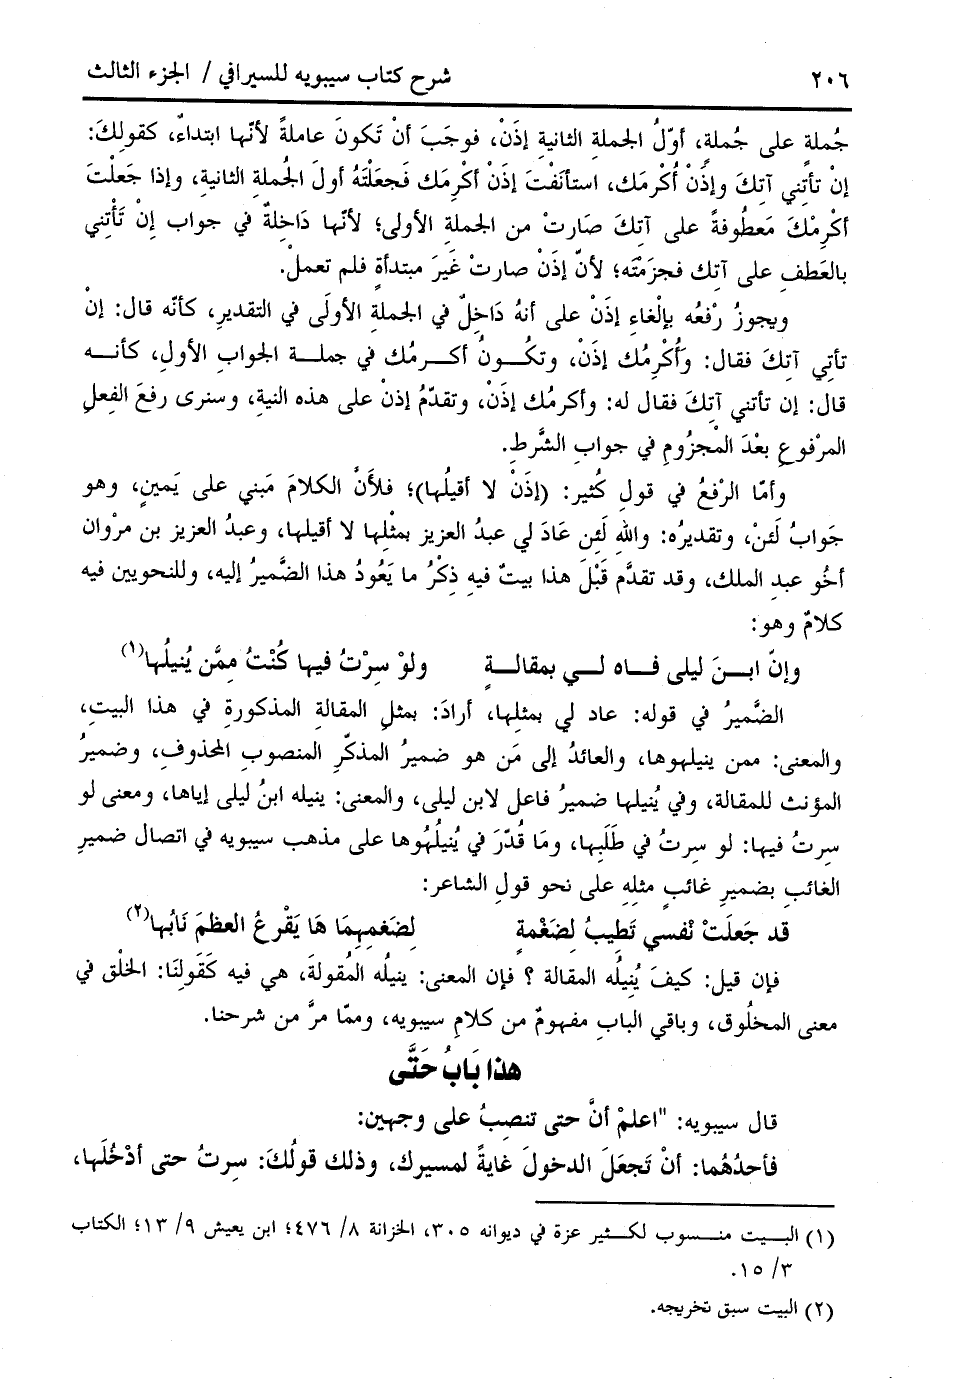 ٢٠٦ شرح كتاب سيبويه للسيرافي / الجزء الثالث
جُملة على جُملةٍ، أوّلُ الجملة الثانية إذَنْ، فوجَبَ أنْ تَكونَ عاملةً لأنّها ابتداءٌ، كقولِكَ:
إنْ تأتِني آتِكَ وإذَنْ أُكْرمَك، استأنَفْتَ إذَنْ أكْرِمَك فجَعلْتَهُ أولَ الجُملة الثانية، وإذا جَعلْتَ
أكْرِمْكَ مَعطُوفةً على آتِكَ صارتْ من الجملة الأولى؛ لأنّها دَاخِلةٌ في جواب إنْ تَأْتني
بالعَطفِ على آتِك فجزَمْتَه؛ لأنّ إذَنْ صارتْ غَيرَ مبتدأةٍ فلم تعمل.
ويجوزُ رفْعُه بإلْغاءِ إذَنْ على أنهُ دَاخِلٌ في الجملةِ الأولَى في التقديرِ، كأنّه قال: إنْ
تأتي آتِكَ فقال: وَأُكْرِمُك إذَنْ، وتكُونُ أكرمُك في جملة الجواب الأول، كأنه
قال: إن تأتني آتكَ فقال له: وأكرمُك إذَنْ، وتقدّمُ إذنْ على هذه النية، وسنرى رفعَ الفعلِ
المرْفوعِ بعْدَ المْجزُومِ في جوابِ الشَّرطِ.
وأمّا الرْفعُ في قولِ كُثير: (إذَنْ لا أقيلُها)؛ فلأنَّ الكلامَ مَبني على يَمينٍ، وهو
جَوابُ لَئنْ، وتقديرُه: واللهِ لَئِن عَادَ لي عبدُ العزيز بمثْلِها لا أقيلها، وعبدُ العزيز بن مرْوان
أخُو عبدِ الملك، وقد تقدَّم قَبْلَ هذا بيتٌ فيه ذِكْرُ ما يَعُودُ هذا الضَّميرُ إليه، وللنحويين فيه
كلامٌ وهو:
وإنّ ابنَ ليلى فاه لي بمقالةٍ ولوْ سِرْتُ فيها كُنْتُ ممَّن يُنيلُها(١)
الضَّميرُ في قوله: عاد لي بمثلِها، أرادَ: بمثلِ المقالة المذكورةِ في هذا البيتِ،
والمعنى: ممن ينيلهوها، والعائدُ إلى مَن هو ضميرُ المذكّرِ المنصوب المحذوفِ، وضميرُ
المؤنث للمقالة، وفي يُنيلها ضميرُ فاعل لابن ليلى، والمعنى: ينيله ابنُ ليلى إياها، ومعنى لو
سِرتُ فيها: لو سِرتُ في طَلَبِها، ومَا قُدّرَ في يُنيلُهُوها على مذهب سيبويه في اتصال ضميرِ
الغائبِ بضميرِ غائبٍ مثلِهِ على نحو قولِ الشاعر:
قد جَعلَتْ نْفسي تَطيبُ لِضَغْمةٍ لِضَغمِهِمَا هَا يَقْرعُ العظمَ نَابُها(٢)
فإن قيل: كيفَ يُنيلُه المقالة ؟ فإن المعنى: ينيلُه المُقولةَ، هي فيه كَقَولِنَا: الخلْق في
معنى المخلُوق، وباقي البابِ مفهومٌ من كلامِ سيبويه، وممّا مرَّ من شرحنا.
هذا بَابُ حَتَّى
قال سيبويه: "اعلمْ أنَّ حتى تنصِبُ على وجهين:
فأحدُهُما: أنْ تَجعَلَ الدخولَ غايةً لمسيرِك، وذلك قولُكَ: سِرتُ حتى أدْخُلَها،
(١) البيت منسوب لكثير عزة في ديوانه ٣٠٥، الخزانة ٨/ ٤٧٦؛ ابن يعيش ٩/ ١٣؛ الكتاب
٣/ ١٥.
(٢) البيت سبق تخريجه.